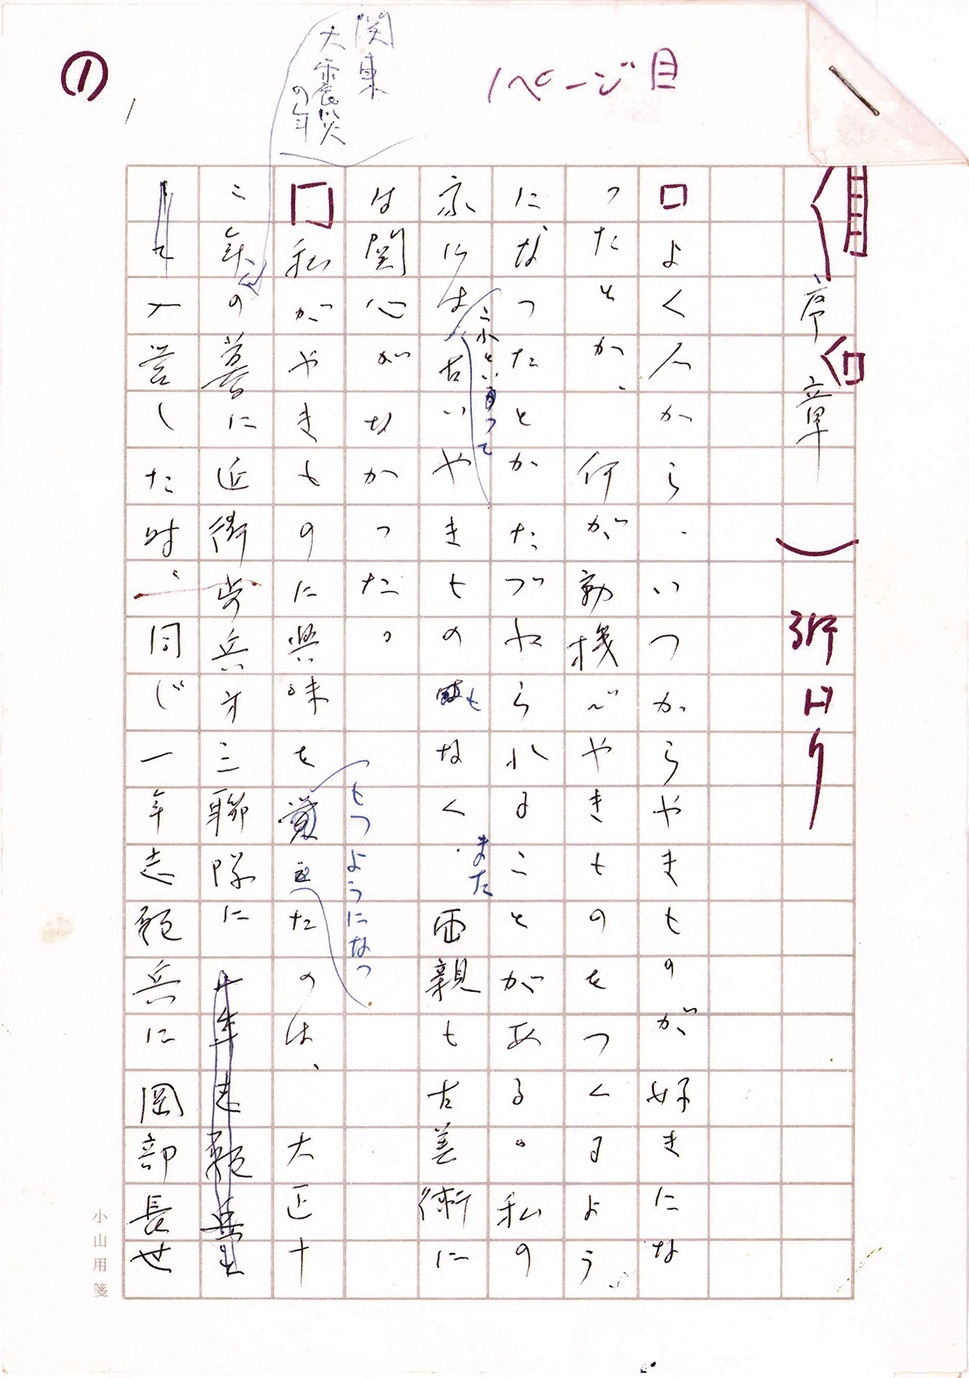 ①
1ページ目
序章
よく人から、いつからやきものが好きにな
ったとか、何が動機でやきものをつくるよう
になったとかたづねられることがある。私の
家にはこれといって古いやきものもなく、また両親も古美術に
は関心がなかった。
私がやきものに興味をもつようになったのは、大正十
二年
関東
大震災
の年
の暮に近衛歩兵才三聯隊に一年志願兵
として入営した時、同じ一年志願兵に岡部長世
小山用箋